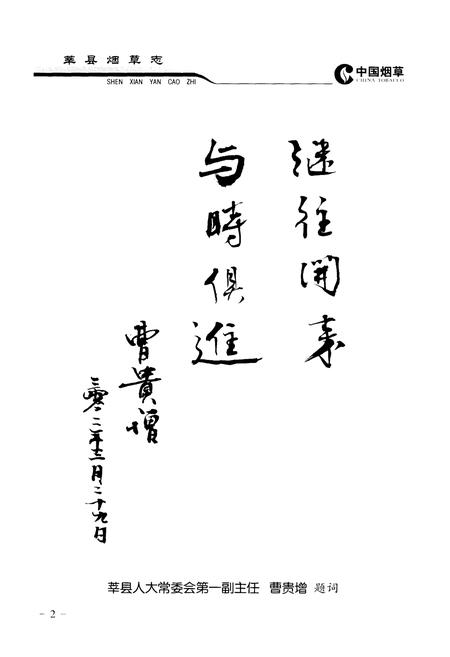 莘县烟草志
SHEN XIAN YAN CAO ZHI
中国烟草
CHINA TOBACCO
继往開来
与時俱進
曹貴增
二零零二年十二月二十九日
莘县人大常委会第一副主任 曹贵增 题词
- 2 -